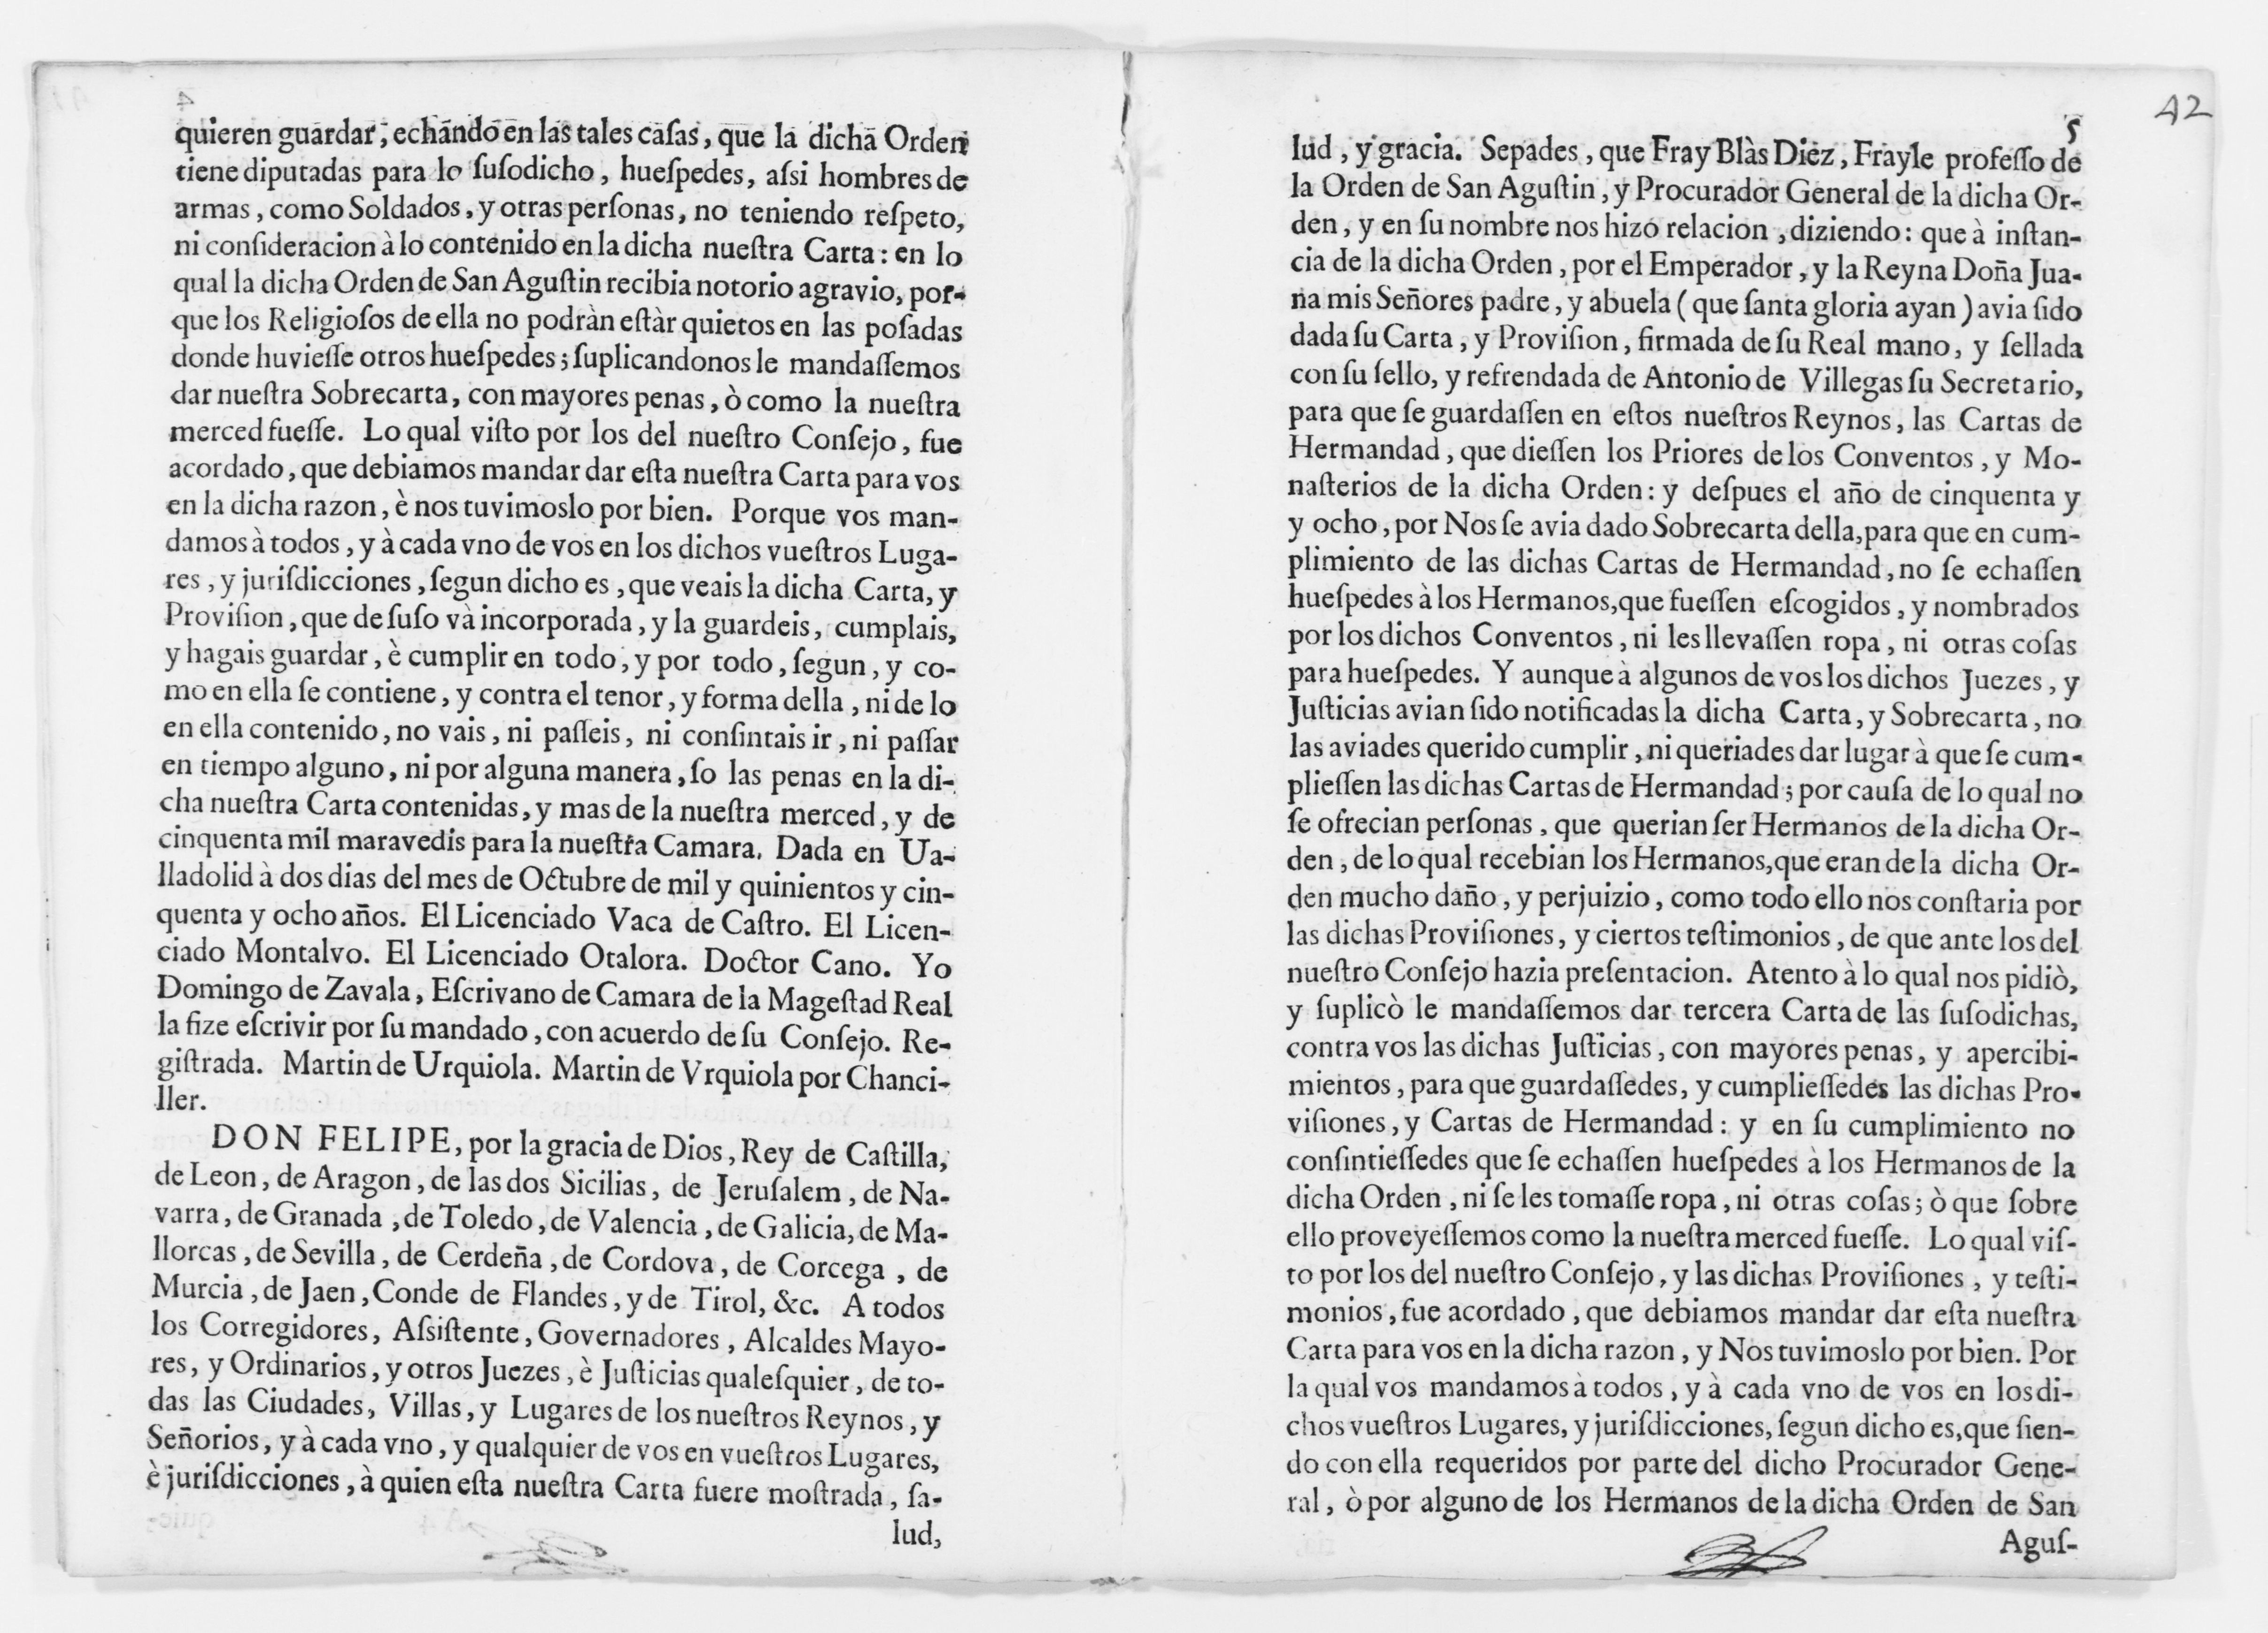 quieren guardar, echando en las tales caſas, que la dicha Orden
tiene diputadas para lo ſuſodicho, hueſpedes, aſsi hombres de
armas, como Soldados, y otras perſonas, no teniendo reſpeto,
ni conſideracion à lo contenido en la dicha nueſtra Carta: en lo
qual la dicha Orden de San Aguſtin recibia notorio agravio, por-
que los Religioſos de ella no podràn eſtàr quietos en las poſadas
donde huvieſſe otros hueſpedes; ſuplicandonos le mandaſſemos
dar nueſtra Sobrecarta, con mayores penas, ò como la nueſtra
merced fueſſe. Lo qual viſto por los del nueſtro Conſejo, fue
acordado, que debiamos mandar dar eſta nueſtra Carta para vos
en la dicha razon, è nos tuvimoslo por bien. Porque vos man-
damos à todos, y à cada vno de vos en los dichos vueſtros Luga-
res, y juriſdicciones, ſegun dicho es, que veais la dicha Carta, y
Proviſion, que de ſuſo và incorporada, y la guardeis, cumplais,
y hagais guardar, è cumplir en todo, y por todo, ſegun, y co-
mo en ella ſe contiene, y contra el tenor, y forma della, ni de lo
en ella contenido, no vais, ni paſſeis, ni conſintais ir, ni paſſar
en tiempo alguno, ni por alguna manera, ſo las penas en la di-
cha nueſtra Carta contenidas, y mas de la nueſtra merced, y de
cinquenta mil maravedis para la nueſtra Camara. Dada en Ua-
lladolid à dos dias del mes de Octubre de mil y quinientos y cin-
quenta y ocho años. El Licenciado Vaca de Caſtro. El Licen-
ciado Montalvo. El Licenciado Otalora. Doctor Cano. Yo
Domingo de Zavala, Eſcrivano de Camara de la Mageſtad Real
la fize eſcrivir por ſu mandado, con acuerdo de ſu Conſejo. Re-
giſtrada. Martin de Urquiola. Martin de Vrquiola por Chanci-
ller.
DON FELIPE, por la gracia de Dios, Rey de Caſtilla,
de Leon, de Aragon, de las dos Sicilias, de Jeruſalem, de Na-
varra, de Granada, de Toledo, de Valencia, de Galicia, de Ma-
llorcas, de Sevilla, de Cerdeña, de Cordova, de Corcega, de
Murcia, de Jaen, Conde de Flandes, y de Tirol, &c. A todos
los Corregidores, Aſsiſtente, Governadores, Alcaldes Mayo-
res, y Ordinarios, y otros Juezes, è Juſticias qualeſquier, de to-
das las Ciudades, Villas, y Lugares de los nueſtros Reynos, y
Señorios, y à cada vno, y qualquier de vos en vueſtros Lugares,
è juriſdicciones, à quien eſta nueſtra Carta fuere moſtrada, ſa-
lud,
42
5
lud, y gracia. Sepades, que Fray Blàs Diez, Frayle profeſſo de
la Orden de San Aguſtin, y Procurador General de la dicha Or-
den, y en ſu nombre nos hizo relacion, diziendo: que à inſtan-
cia de la dicha Orden, por el Emperador, y la Reyna Doña Jua-
na mis Señores padre, y abuela (que ſanta gloria ayan) avia ſido
dada ſu Carta, y Proviſion, firmada de ſu Real mano, y ſellada
con ſu ſello, y refrendada de Antonio de Villegas ſu Secretario,
para que ſe guardaſſen en eſtos nueſtros Reynos, las Cartas de
Hermandad, que dieſſen los Priores de los Conventos, y Mo-
naſterios de la dicha Orden: y deſpues el año de cinquenta y
y ocho, por Nos ſe avia dado Sobrecarta della, para que en cum-
plimiento de las dichas Cartas de Hermandad, no ſe echaſſen
hueſpedes à los Hermanos, que fueſſen eſcogidos, y nombrados
por los dichos Conventos, ni les llevaſſen ropa, ni otras coſas
para hueſpedes. Y aunque à algunos de vos los dichos Juezes, y
Juſticias avian ſido notificadas la dicha Carta, y Sobrecarta, no
las aviades querido cumplir, ni queriades dar lugar à que ſe cum-
plieſſen las dichas Cartas de Hermandad; por cauſa de lo qual no
ſe ofrecian perſonas, que querian ſer Hermanos de la dicha Or-
den, de lo qual recebian los Hermanos, que eran de la dicha Or-
den mucho daño, y perjuizio, como todo ello nos conſtaria por
las dichas Proviſiones, y ciertos teſtimonios, de que ante los del
nueſtro Conſejo hazia preſentacion. Atento à lo qual nos pidiò,
y ſuplicò le mandaſſemos dar tercera Carta de las ſuſodichas,
contra vos las dichas Juſticias, con mayores penas, y apercibi-
mientos, para que guardaſſedes, y cumplieſſedes las dichas Pro-
viſiones, y Cartas de Hermandad: y en ſu cumplimiento no
conſintieſſedes que ſe echaſſen hueſpedes à los Hermanos de la
dicha Orden, ni ſe les tomaſſe ropa, ni otras coſas; ò que ſobre
ello proveyeſſemos como la nueſtra merced fueſſe. Lo qual viſ-
to por los del nueſtro Conſejo, y las dichas Proviſiones, y teſti-
monios, fue acordado, que debiamos mandar dar eſta nueſtra
Carta para vos en la dicha razon, y Nos tuvimoslo por bien. Por
la qual vos mandamos à todos, y à cada vno de vos en los di-
chos vueſtros Lugares, y juriſdicciones, ſegun dicho es, que ſien-
do con ella requeridos por parte del dicho Procurador Gene-
ral, ò por alguno de los Hermanos de la dicha Orden de San
Aguſ-